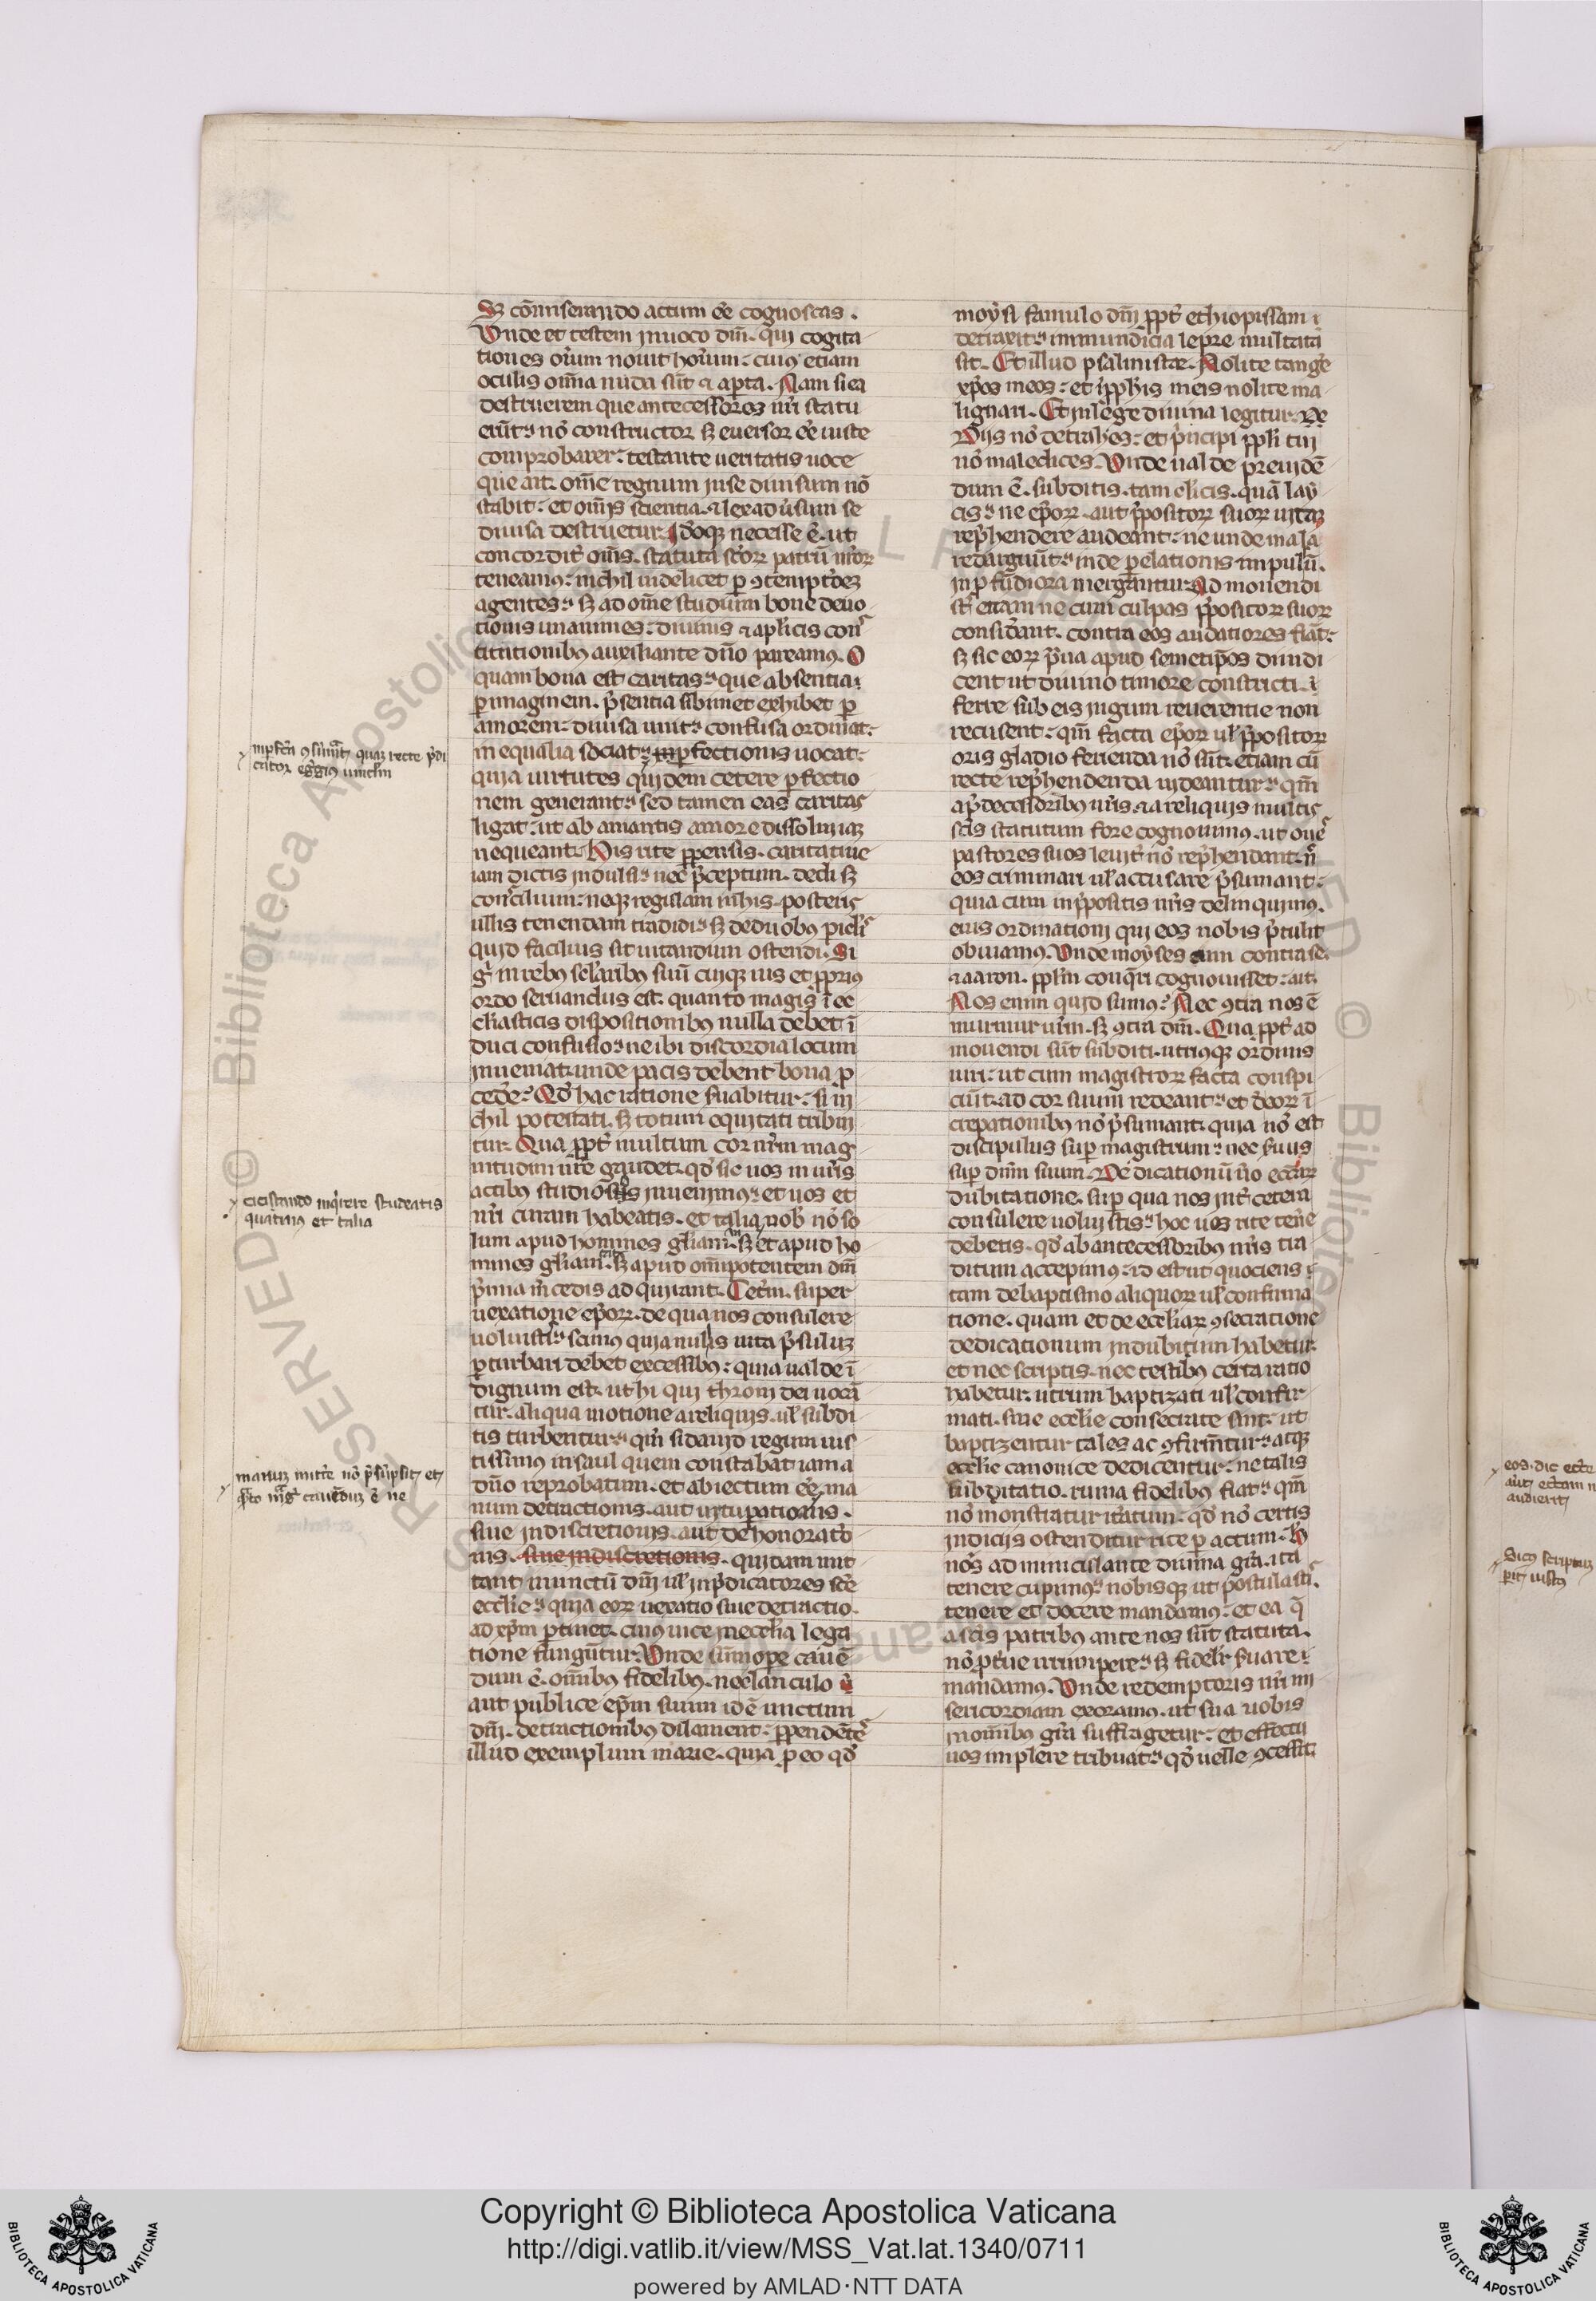 Sꝫ cōmiserando actum eē cognoscas.
Vnde et testem inuoco dm̄. qui cogita
tiones om̄ium nouit horum. cuiꝰ etiam
oculis om̄ia nuda sūt ⁊ aperta. Nam si ea
destruerem que antecessores nr̄i statu
erūt. nō constructor sꝫ euersor eē iuste
comprobarer. testante ueritatis uoce
que ait. om̄e regnum in se diuisum nō
stabit. et om̄is scientia. ⁊ lex aduersum se
diuisa destruetur. Idoqꝫ necesse ē. ut
concordit̄ om̄s. statuta sc̄orꝝ patrū nr̄orꝝ
teneamꝰ. nichil uidelicet ꝑ ꝯtemptoēꝫ
agentes. sꝫ ad om̄e studium bone deuo
tionis unanimes. diuinis ⁊ apl̄icis con
titutionibꝰ auxiliante dn̄o pareamꝰ. O
quam bona est caritas. que absentia
ꝑ imaginem. p̄sentia sibimet exhibet ꝑ
amorem. diuisa unit. confusa ordinat.
in equalia sociat. inꝑfectionis uocat.
quia uirtutes quidem cetere ꝑfectio
nem generant. sed tamen eas caritas
ligat. ut ab amantis amore dissolui iaꝫ
nequeant. His rite ꝓpensis. caritatiue
iam dictis indulsi. nec p̄ceptum. dedi sꝫ
consilium. neqꝫ regulam nihis. posteris
ullis tenendam tradidi. sꝫ de duobꝰ picl̄is
quid facilius sit uitandum ostendi. Si
gͥ in rebꝰ sel̄aribꝰ suū cuiqꝫ ius et ꝓpriꝰ
ordo seruandus est. quanto magis ī ec
cl̄iasticis dispositionibꝰ nulla debet ī
duci confusio. ne ibi discordia locum
inueniat. unde pacis debent bona ꝓ
cedē. Qd̄ hac ratione suabitur. si ni
chil potestati. sꝫ totum equitati tribui
tur. Qua ꝓpt̄ multum cor nr̄m mag
nitudini ur̄e gaudet. qd̄ sic uos in ur̄is
actibꝰ studiosos inuenimꝰ. et uos et
nr̄i curam habeatis. et talia nob̄ nō so
lum apud homines gl̄iam. sꝫ et apud ho
mines gl̄iam. sꝫ apud om̄ipotentem dm̄
p̄mia m̄cedis adquirant. Ceter̄. super
uexatione epōrꝝ. de qua nos consulere
uoluistis. scimꝰ quia nullis uita p̄suluꝫ
ꝑturbari debet excessibꝰ. quia ualde ī
dignum est. ut hi qui throni dei uocā
tur. aliqua motione a reliquis. ul̄ subdi
tis turbentur. qm̄ si dauid regum ius
tissimus in saul quem constabat iam a
dn̄o reprobatum. et abiectum eē. ma
num detractionis. aut uituperationis.
siue indiscretionis. aut dehonoratō
nis. siue indiscretionis. quidam mit
tant in unctū dm̄i ul̄ in p̄dicatores sc̄e
eccl̄ie. quia eorꝝ uexatio siue detractio.
ad xp̄m ꝑtinet. cuiꝰ uice in eccl̄ia lega
tione fungūtur. Vnde summope cauē
dum ē. om̄ibꝰ fidelibꝰ. ne clanculo
aut publice ep̄m suum id ē unctum
dn̄i. detractionibꝰ dilanient. ꝑpendētes
illud exemplum marie. quia ꝑ eo qd̄
moysi famulo dm̄i ꝓpt̄ ethiopissam
detraxit. inmundicia lepre multata
sit. Et illud psalmiste. Nolite tangē
xp̄os meos. et in ꝓph̄is meis nolite ma
lignari. Et in lege diuina legitur. De
Diis nō detrahes. et p̄ncipi ppl̄i tui
nō maledices. Vnde ualde preuidē
dum ē. subditis. tam cl̄icis. quā lay
cis. ne ep̄orꝝ. aut p̄positorꝝ suorꝝ uitaꝫ
rep̄hendere audeant. ne unde mala
redarguūt. inde ꝑ elationis impulū.
in ꝓfūdiora mergantur. Ad monendi
st̄ etiam ne cum culpas p̄positorꝝ suorꝝ
considant. contra eos audatiores fiāt.
sꝫ sic eorꝝ p̄ua apud semetip̄os diiudi
cent ut diuino timore constricti
ferre sub eis iugum reuerentie non
recusent. qm̄ facta ep̄orꝝ ul̄ p̄positorꝝ
oris gladio ferienda nō sūt. etiam cū
recte rep̄hendenda uideantur. qm̄
a p̄decessoribꝰ nr̄is. ⁊ a reliquis multis
scīs statutum fore cognouimꝰ. ut oues
pastores suos leuit̄ nō rep̄hendant. n̄
eos criminari ul̄ accusare p̄sumant.
quia cum in p̄positis nr̄is delinquimꝰ.
eius ordinationi qui eos nobis p̄tulit
obuiamꝰ. Vnde moyses cum contra se.
⁊ aaron. ppl̄m conq̄ri cognouisset. ait.
Nos enim quid sumus? Nec ꝯtra nos ē
murmur ur̄m. sꝫ ꝯtra dm̄. Qua ꝓpt̄ ad
mouendi sūt subditi. utriusqꝫ ordinis
uiri. ut cum magistrorꝝ facta conspi
ciūt. ad cor suum redeant. et de eorꝝ ī
crepationibꝰ nō p̄sumant. quia nō est
discipulus sup magistrum. nec suus
sup dnm̄ suum. De dicationū uō ecc̄arꝝ
dubitatione. sup qua nos int̄ cetera
consulere uoluistis. hoc uos rite tenē
debetis. qd̄ ab antecessoribꝰ nr̄is tra
ditum accepimꝰ. id est ut quociens
tam de baptismo aliquorꝝ ul̄ confirma
tione. quam et de eccl̄iarꝝ ꝯsecratione
dedicationum indubitum habetur.
et nec scriptis. nec testibꝰ certa ratio
habetur. utrum baptizati ul̄ confir
mati. siue eccl̄ie consecrate sint. ut
baptizentur tales ac ꝯfirm̄tur. atqꝫ
eccl̄ie canonice dedicentur. ne talis
dubitatio. ruina fidelibꝰ fiat. qm̄
nō monstratur it̄atum. qd̄ nō certis
indiciis ostenditur rite ꝑactum. H
nos adminiculante diuina gr̄a. ita
tenere cupimꝰ. nobisqꝫ ut postulastis.
tenere et docere mandamꝰ. et ea q̄
a sc̄is patribus ante nos sūt statuta.
nō ꝓt̄ue irrumpere. sꝫ fidelit̄ suare
mandamꝰ. Vnde redemptoris nr̄i mi
sericordiam exoramꝰ. ut sua uobis
in om̄ibꝰ gr̄a suffragetur. et effectu
uos implere tribuat. qd̄ uelle ꝯcessit.
quaꝫ recte p̄di
cator egͥgiꝰ uinclm̄
studeatis
quatinꝰ et talia
manuꝫ mittē nō p̄sūpsit et
q̄to mͣgͥ cauēduꝫ ē ne
audierit
Copyright © Biblioteca Apostolica Vaticana
http://digi.vatlib.it/view/MSS_Vat.lat.1340/0711
powered by AMLAD·NTT DATA
BIBLIOTECA APOSTOLICA VATICANA
BIBLIOTECA APOSTOLICA VATICANA